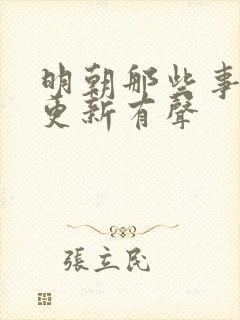 明朝那些事
更新有聲
張立民